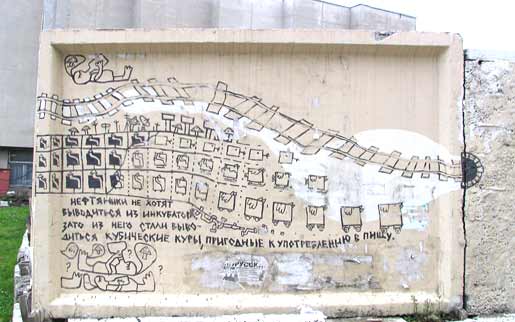 НЕФТЯНИКИ НЕ ХОТЯТ
ВЫВОДИТЬСЯ ИЗ ИНКУБАТОРА
ЗАТО ИЗ НЕГО СТАЛИ ВЫВО-
ДИТЬСЯ КУБИЧЕСКИЕ КУРЫ, ПРИГОДНЫЕ К УПОТРЕБЛЕНИЮ В ПИЩУ.
? ?
? ?